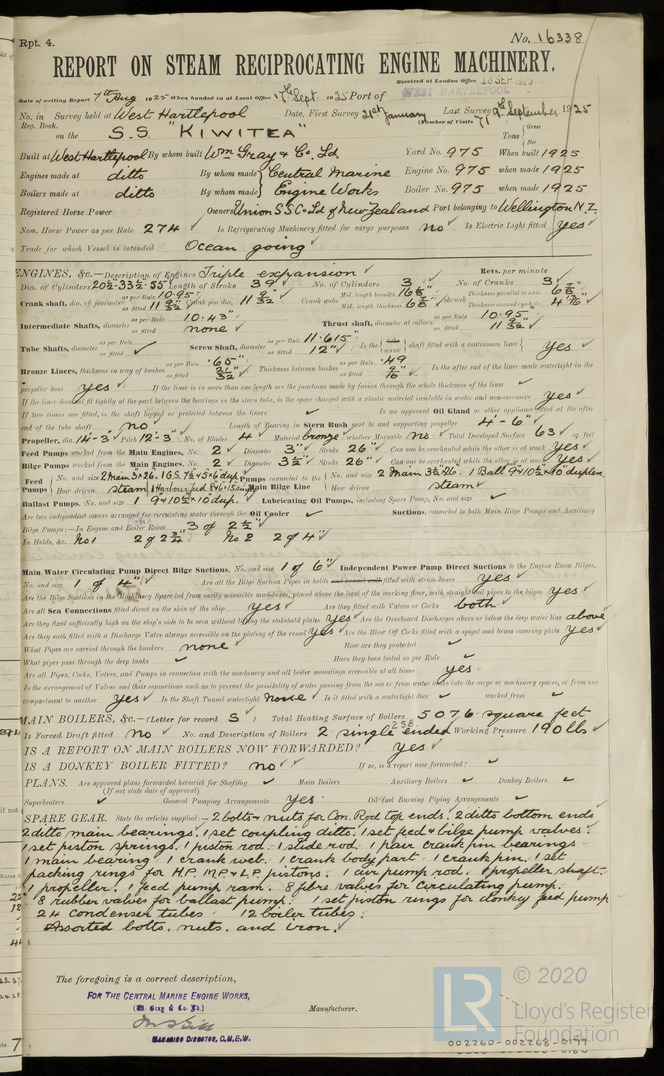 Rpt. 4.
No. 16338
REPORT ON STEAM RECIPROCATING ENGINE MACHINERY.
Received at London Office 18 SEP 1925
Date of writing Report 7th Aug 1925 When handed in at Local Office 17th Sept 1925 Port of WEST HARTLEPOOL
No. in Survey held at West Hartlepool Date, First Survey 21st January Last Survey 9th September 1925
Reg. Book. (Number of Visits 71
on the S.S. "KIWITEA" Tons { Gross Net
Built at West Hartlepool By whom built Wm Gray & Co. Ld Yard No. 975 When built 1925
Engines made at ditto By whom made } Central Marine Engine No. 975 when made 1925
Boilers made at ditto By whom made } Engine Works Boiler No. 975 when made 1925
Registered Horse Power Owners Union S S Co Ld of New Zealand Port belonging to Wellington N.Z.
Nom. Horse Power as per Rule 274 Is Refrigerating Machinery fitted for cargo purposes no Is Electric Light fitted Yes
Trade for which Vessel is intended Ocean going
ENGINES, &c.—Description of Engines Triple expansion Revs. per minute
Dia. of Cylinders 20½-33½-55 Length of Stroke 39 No. of Cylinders 3 No. of Cranks 3
Crank shaft, dia. of journals as per Rule 10.95" as fitted 11 9/32" Crank pin dia. 11 9/32" Crank webs Mid. length breadth 16⅝" Mid. length thickness 6⅝" shrunk Thickness parallel to axis 6⅝" Thickness around eye-hole
Intermediate Shafts, diameter as per Rule 10.43" as fitted none Thrust shaft, diameter at collars as per Rule 10.95" as fitted 11 9/32"
Tube Shafts, diameter as per Rule as fitted Screw Shaft, diameter as per Rule 11.615" as fitted 12" Is the { tube screw } shaft fitted with a continuous liner { Yes
Bronze Liners, thickness in way of bushes as per Rule .65" as fitted Thickness between bushes as per Rule .49 as fitted 9/16" Is the after end of the liner made watertight in the
propeller boss yes If the liner is in more than one length are the junctions made by fusion through the whole thickness of the liner
If the liner does not fit tightly at the part between the bearings in the stern tube, is the space charged with a plastic material insoluble in water and non-corrosive yes
If two liners are fitted, is the shaft lapped or protected between the liners Is an approved Oil Gland or other appliance fitted at the after
end of the tube shaft no Length of Bearing in Stern Bush next to and supporting propeller 4'-6"
Propeller, dia. 14'-3" Pitch 12'-3" No. of Blades 4 Material bronze whether Moveable no Total Developed Surface 63 sq. feet
Feed Pumps worked from the Main Engines, No. 2 Diameter 3" Stroke 26" Can one be overhauled while the other is at work yes
Bilge Pumps worked from the Main Engines, No. 2 Diameter 3½" Stroke 26" Can one be overhauled while the other is at work yes
Feed Pumps { No. and size 2 Main 3 x 26. 1 G.S. 7½ x 5 x 6 dup. Pumps connected to the Main Bilge Line { No. and size 2 Main 3½ x 26. 1 Ball 9 x 10½ x 10" duplex
How driven steam How driven steam
Ballast Pumps, No. and size 1 9 x 10½ x 10 dup. Lubricating Oil Pumps, including Spare Pump, No. and size
Are two independent means arranged for circulating water through the Oil Cooler Suctions, connected to both Main Bilge Pumps and Auxiliary
Bilge Pumps;—In Engine and Boiler Room 3 of 2½"
In Holds, &c. No 1 2 of 2¾" No 2 2 of 4"
Main Water Circulating Pump Direct Bilge Suctions, No. and size 1 of 6" Independent Power Pump Direct Suctions to the Engine Room Bilges,
No. and size 1 of 4" Are all the Bilge Suction Pipes in holds and tunnel well fitted with strum-boxes yes
Are the Bilge Suctions in the Machinery Space led from easily accessible mud-boxes, placed above the level of the working floor, with straight tail pipes to the bilges yes
Are all Sea Connections fitted direct on the skin of the ship yes Are they fitted with Valves or Cocks both
Are they fixed sufficiently high on the ship's side to be seen without lifting the stokehold plates yes Are the Overboard Discharges above or below the deep water line above
Are they each fitted with a Discharge Valve always accessible on the plating of the vessel yes Are the Blow Off Cocks fitted with a spigot and brass covering plate yes
What Pipes are carried through the bunkers none How are they protected
What pipes pass through the deep tanks Have they been tested as per Rule
Are all Pipes, Cocks, Valves, and Pumps in connection with the machinery and all boiler mountings accessible at all times yes
Is the arrangement of Valves and their connections such as to prevent the possibility of water passing from the sea or from water tanks into the cargo or machinery spaces, or from one
compartment to another yes Is the Shaft Tunnel watertight none Is it fitted with a watertight door worked from
MAIN BOILERS, &c.—(Letter for record S) Total Heating Surface of Boilers 5076 square feet
Is Forced Draft fitted no No. and Description of Boilers 2 single ended 2 S.B. Working Pressure 190 lbs
IS A REPORT ON MAIN BOILERS NOW FORWARDED? Yes
IS A DONKEY BOILER FITTED? no If so, is a report now forwarded?
PLANS. Are approved plans forwarded herewith for Shafting Main Boilers Auxiliary Boilers Donkey Boilers
(If not state date of approval)
Superheaters General Pumping Arrangements yes Oil fuel Burning Piping Arrangements
SPARE GEAR. State the articles supplied:— 2 bolts & nuts for Con. Rod top ends. 2 ditto bottom ends
2 ditto main bearings. 1 set coupling ditto. 1 set feed & bilge pump valves.
1 set piston springs. 1 piston rod. 1 slide rod. 1 pair crank pin bearings
1 main bearing 1 crank web. 1 crank body part. 1 crank pin. 1 set
packing rings for H.P. M.P. & L.P. pistons. 1 air pump rod. 1 propeller shaft.
1 propeller. 1 feed pump ram. 8 fibre valves for circulating pump.
8 rubber valves for ballast pump. 1 set piston rings for donkey feed pump
24 condenser tubes 12 boiler tubes.
Assorted bolts, nuts, and iron.
The foregoing is a correct description,
FOR THE CENTRAL MARINE ENGINE WORKS,
(W. Gray & Co. Ld.)
Manufacturer.
MANAGING DIRECTOR, C.M.E.W.
LR © 2020
Lloyd's Register
Foundation
002260-002268-0177